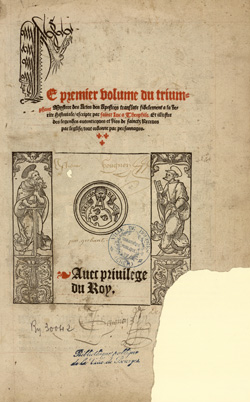 Le premier volume du trium-
phant Mystere des Actes des Apostres translate fidelement a la ve-
rite Historiale, escripte par sainct Luc a Theophile. Et illustre
des legendes autenticques et vies de sainctz receues
par leglise, tout ordonne par personnages.
Auec priuilege
du Roy.
Bibliothèque publique
de la Ville de Bourges